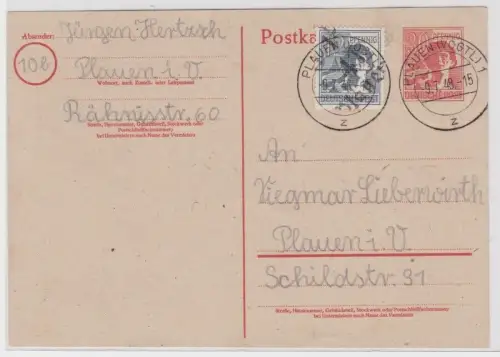 Absender:
Jürgen Hertzsch
10b
Plauen i. V.
Wohnort, auch Zustell- oder Leitpostamt
Rähnisstr. 60
Straße, Hausnummer, Gebäudeteil, Stockwerk oder
Postschließfachnummer;
bei Untermietern auch Name des Vermieters
Postka
PFENNIG
PFENNIG
DEUTSCHE POST
PLAUEN (VOGTL) 1
48.-15
z
z
An
Siegmar Lieberwirth
Plauen i. V.
Schildstr. 31
Straße, Hausnummer, Gebäudeteil, Stockwerk oder Postschließfachnummer;
bei Untermietern auch Name des Vermieters